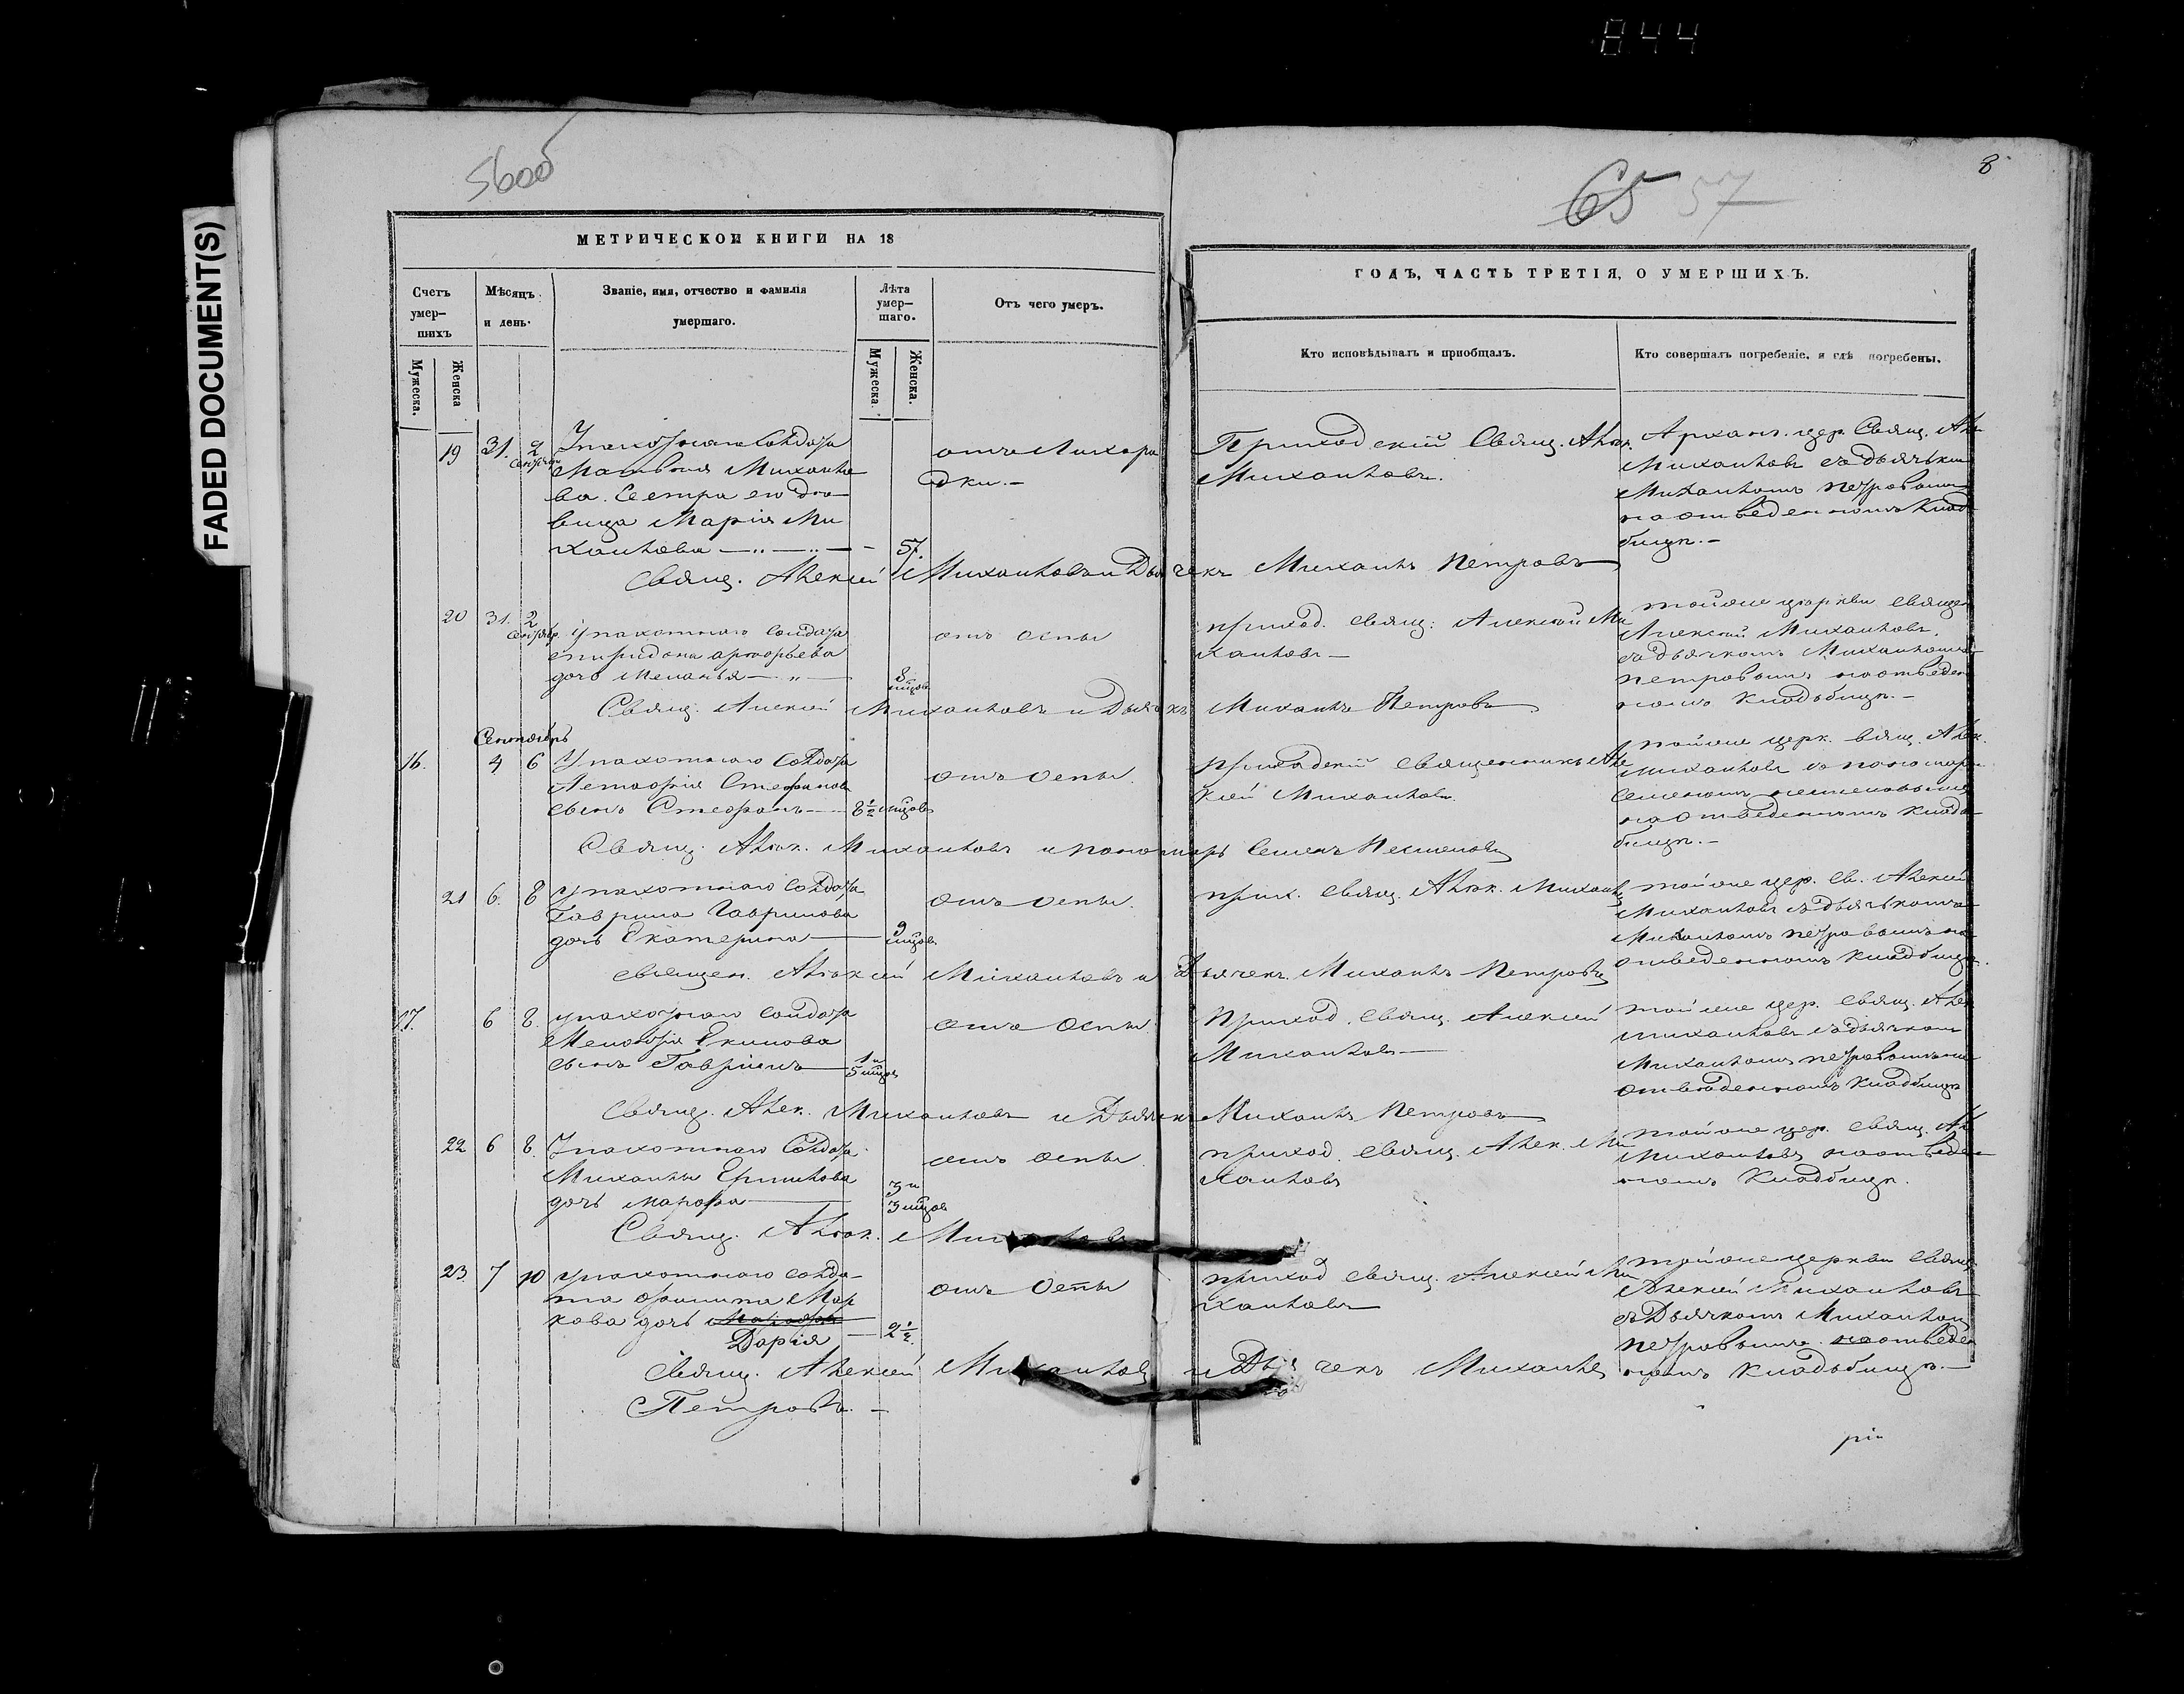 844
FADED DOCUMENT(S)
560об
65 57
8
МЕТРИЧЕСКОЙ КНИГИ НА 18
ГОДЪ, ЧАСТЬ ТРЕТІЯ, О УМЕРШИХЪ.
Счетъ умер-шихъ
Мѣсяцъ и день.
Званіе, имя, отчество и фамилія умершаго.
Лѣта умер-шаго.
Отъ чего умеръ.
Кто исповѣдывалъ и пріобщалъ.
Кто совершалъ погребеніе, и гдѣ погребены.
Мужеска.
Женска
Мужеска.
Женска.
19 31. 2 Упахотнаго Солдата
Матвея Михайло
ва. Сестра его дѣ
вица Марія Ми
хайлова 57.
отъ Лихора
дки.
Приходскій Свящ. Алек.
Михайловъ.
Архан. цер. Свящ. Але
Михайловъ съ дьячком
Михайломъ Петровым
на отведенномъ клад
бищѣ.
Свящ. Алексей Михайловъ и Дьячекъ Михаилъ Петровъ
20 31. 2 упахотнаго солдата
спиридона
дочь Меланья 8 мцов
отъ оспы
приход. свящ: Алексей Ми
хайловъ
тойже церкви священ
Алексей Михайловъ.
съ дьячкомъ Михайломъ
петровымъ на отведен
номъ кладбищѣ.
Свящ. Алексей Михайловъ и Дьячекъ Михаилъ Петровъ
Сентябрь
16. 4 6 Упахотнаго Солдата
Стефанова
сынъ Стефанъ 8½ мцовъ
отъ оспы.
приходскій священникъ Але
ксей Михайловъ.
тойже церк. свящ. Алек.
михайловъ съ пономаремъ
Семеномъ
на отведенномъ кладь
бищѣ.
Свящ. Алек. Михайловъ и пономарь Семенъ
21 6. 8 упахотнаго солдата
Гаврила Гаврилова
дочь Екатерина 9 мцовъ
отъ оспы.
прих. свящ. Алек. Михайл
тойже цер. св. Алексей
Михайловъ съ дьячькомъ
Михайломъ петровымъ на
отведенномъ кладбищѣ.
священ. Алексей Михайловъ и Дьячекъ Михаилъ Петровъ
17. 6 8. упахотнаго солдата
Екимова
сынъ Гавріилъ 1 и 5 мцов
отъ Оспы.
Приход. свящ. Алексей
Михайловъ
тойже цер. свящ. Але
михайловъ съ дьячком
Михайломъ петровымъ на
отведенномъ кладбищѣ
Свящ. Алек. Михайловъ и Дьячекъ Михаилъ Петровъ
22 6 8. Упахотнаго Солдата
Михаилы Ермилова
дочь марфа 3 и 3 мцов
отъ оспы.
приход. свящ. Алек. Ми
хайловъ
тойже цер. свящ. Але
Михайловъ на отведен
номъ Кладбищѣ.
Свящ. Алек. Михайловъ
23. 7 10 упахотнаго солда
та филипа Мар
кова дочь
Дарія 2½.
отъ Оспы
приход свящ. Алексей Ми
хайловъ
тойже церкви свящ
Алексей Михайловъ
съ Дьячкомъ Михайлом
петровымъ на отведен
номъ кладьбищѣ.
Свящ. Алексей Михайловъ и Дьячекъ Михаилъ
Петровъ.